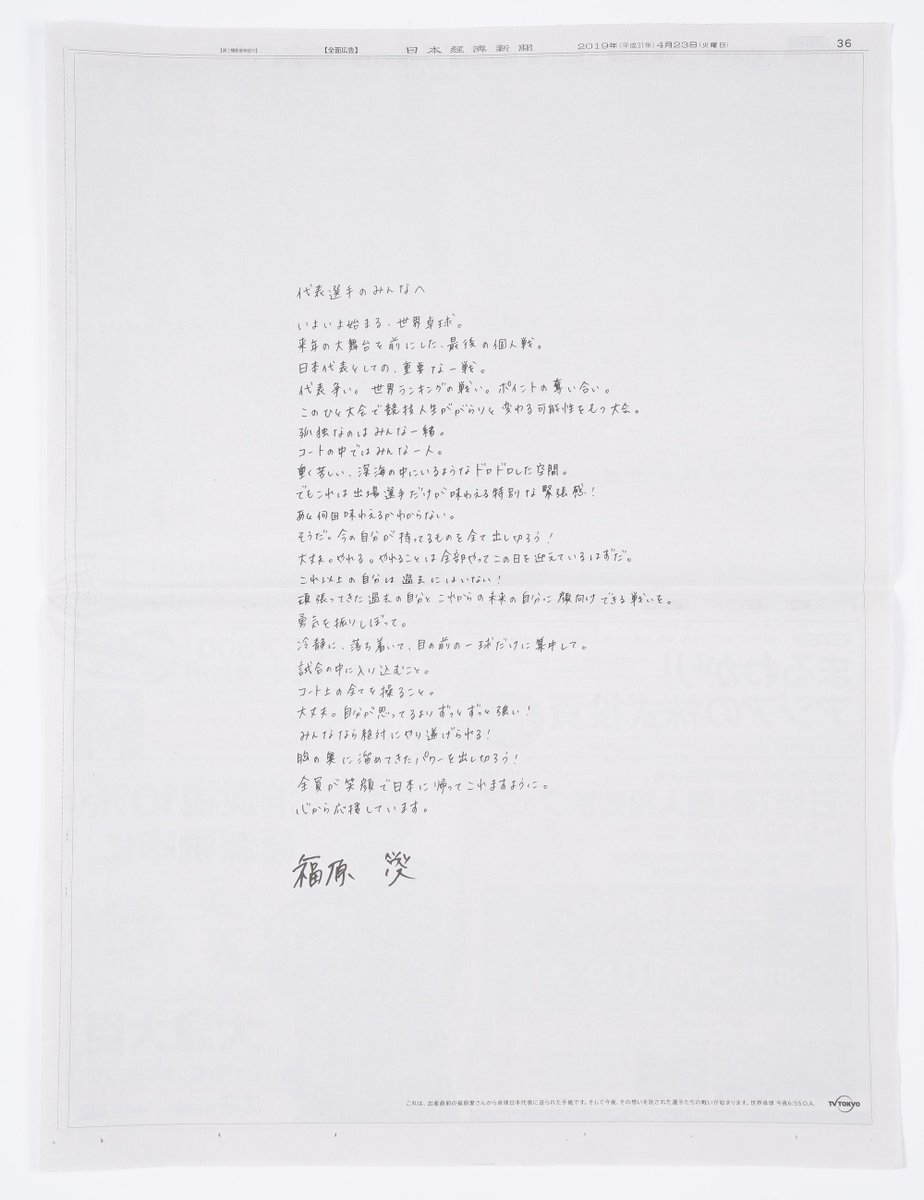 【全面広告】 日本経済新聞 2019年(平成31年)4月23日(火曜日) 36
代表選手のみんなへ
いよいよ始まる、世界卓球。
来年の大舞台を前にした、最後の個人戦。
日本代表としての、重要な一戦。
代表争い。世界ランキングの戦い。ポイントの奪い合い。
このひと大会で競技人生ががらりと変わる可能性をもつ大会。
孤独なのはみんな一緒。
コートの中ではみんな一人。
重く苦しい、深海の中にいるようなドロドロした空間。
でもこれは出場選手だけが味わえる特別な緊張感！
あと何回味わえるかわからない。
そうだ。今の自分が持ってるものを全て出し切ろう！
大丈夫。やれる。やれることは全部やってこの日を迎えているはずだ。
これ以上の自分は過去にはいない！
頑張ってきた過去の自分とこれからの未来の自分に顔向けできる戦いを。
勇気を振りしぼって。
冷静に、落ち着いて、目の前の一球だけに集中して。
試合の中に入り込むこと。
コート上の全てを操ること。
大丈夫。自分が思ってるよりずっとずっと強い！
みんななら絶対にやり遂げられる！
胸の奥に溜めてきたパワーを出し切ろう！
全員が笑顔で日本に帰ってこれますように。
心から応援しています。
福原 愛
これは、出産直前の福原愛さんから卓球日本代表に送られた手紙です。そして今夜、その想いを託された選手たちの戦いが始まります。世界卓球 今夜6:55 O.A. TV TOKYO